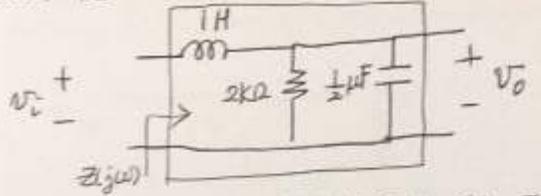 1H
+ v_i -
2KΩ
½μF
+ v_o -
Z(jω)